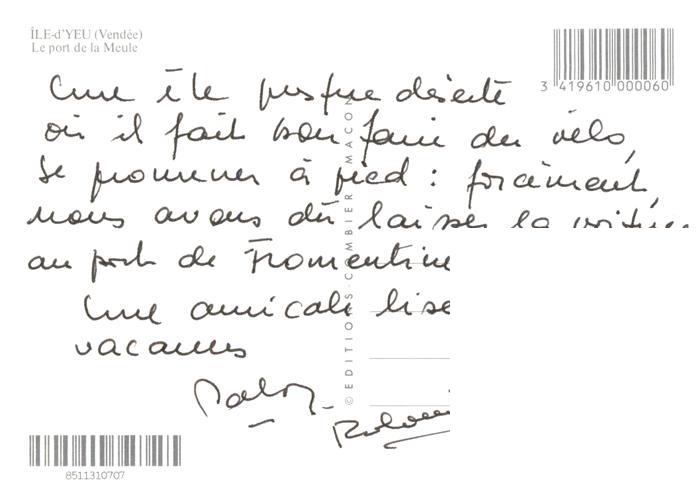 ÎLE-d'YEU (Vendée)
Le port de la Meule
3 419610 000060
Une île presque déserte
où il fait bon faire du vélo,
se promener à pied : forcément,
nous avons dû laisser la voiture
au port de Fromentine
Une amicale
vacances
© EDITIONS COMBIER MACON
8511310707